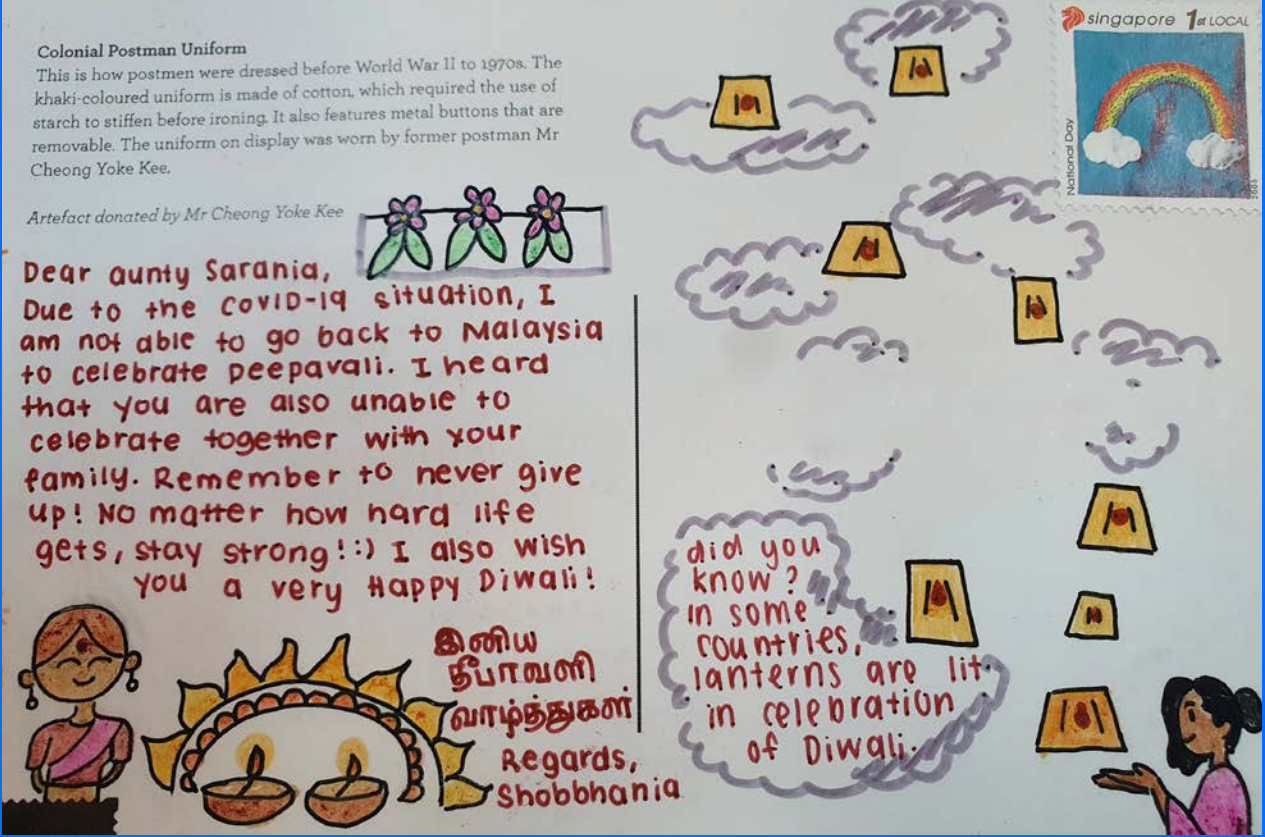 Colonial Postman Uniform
This is how postmen were dressed before World War II to 1970s. The
khaki-coloured uniform is made of cotton, which required the use of
starch to stiffen before ironing. It also features metal buttons that are
removable. The uniform on display was worn by former postman Mr
Cheong Yoke Kee.
Artefact donated by Mr Cheong Yoke Kee
Dear aunty Sarania,
Due to the COVID-19 situation, I
am not able to go back to Malaysia
to celebrate Deepavali. I heard
that you are also unable to
celebrate together with your
family. Remember to never give
up! No matter how hard life
gets, stay strong! :) I also wish
you a very Happy Diwali!
இனிய
தீபாவளி
வாழ்த்துகள்
Regards,
Shobbhania
singapore 1st LOCAL
National Day
2003
did you
know?
in some
countries,
lanterns are lit
in celebration
of Diwali.